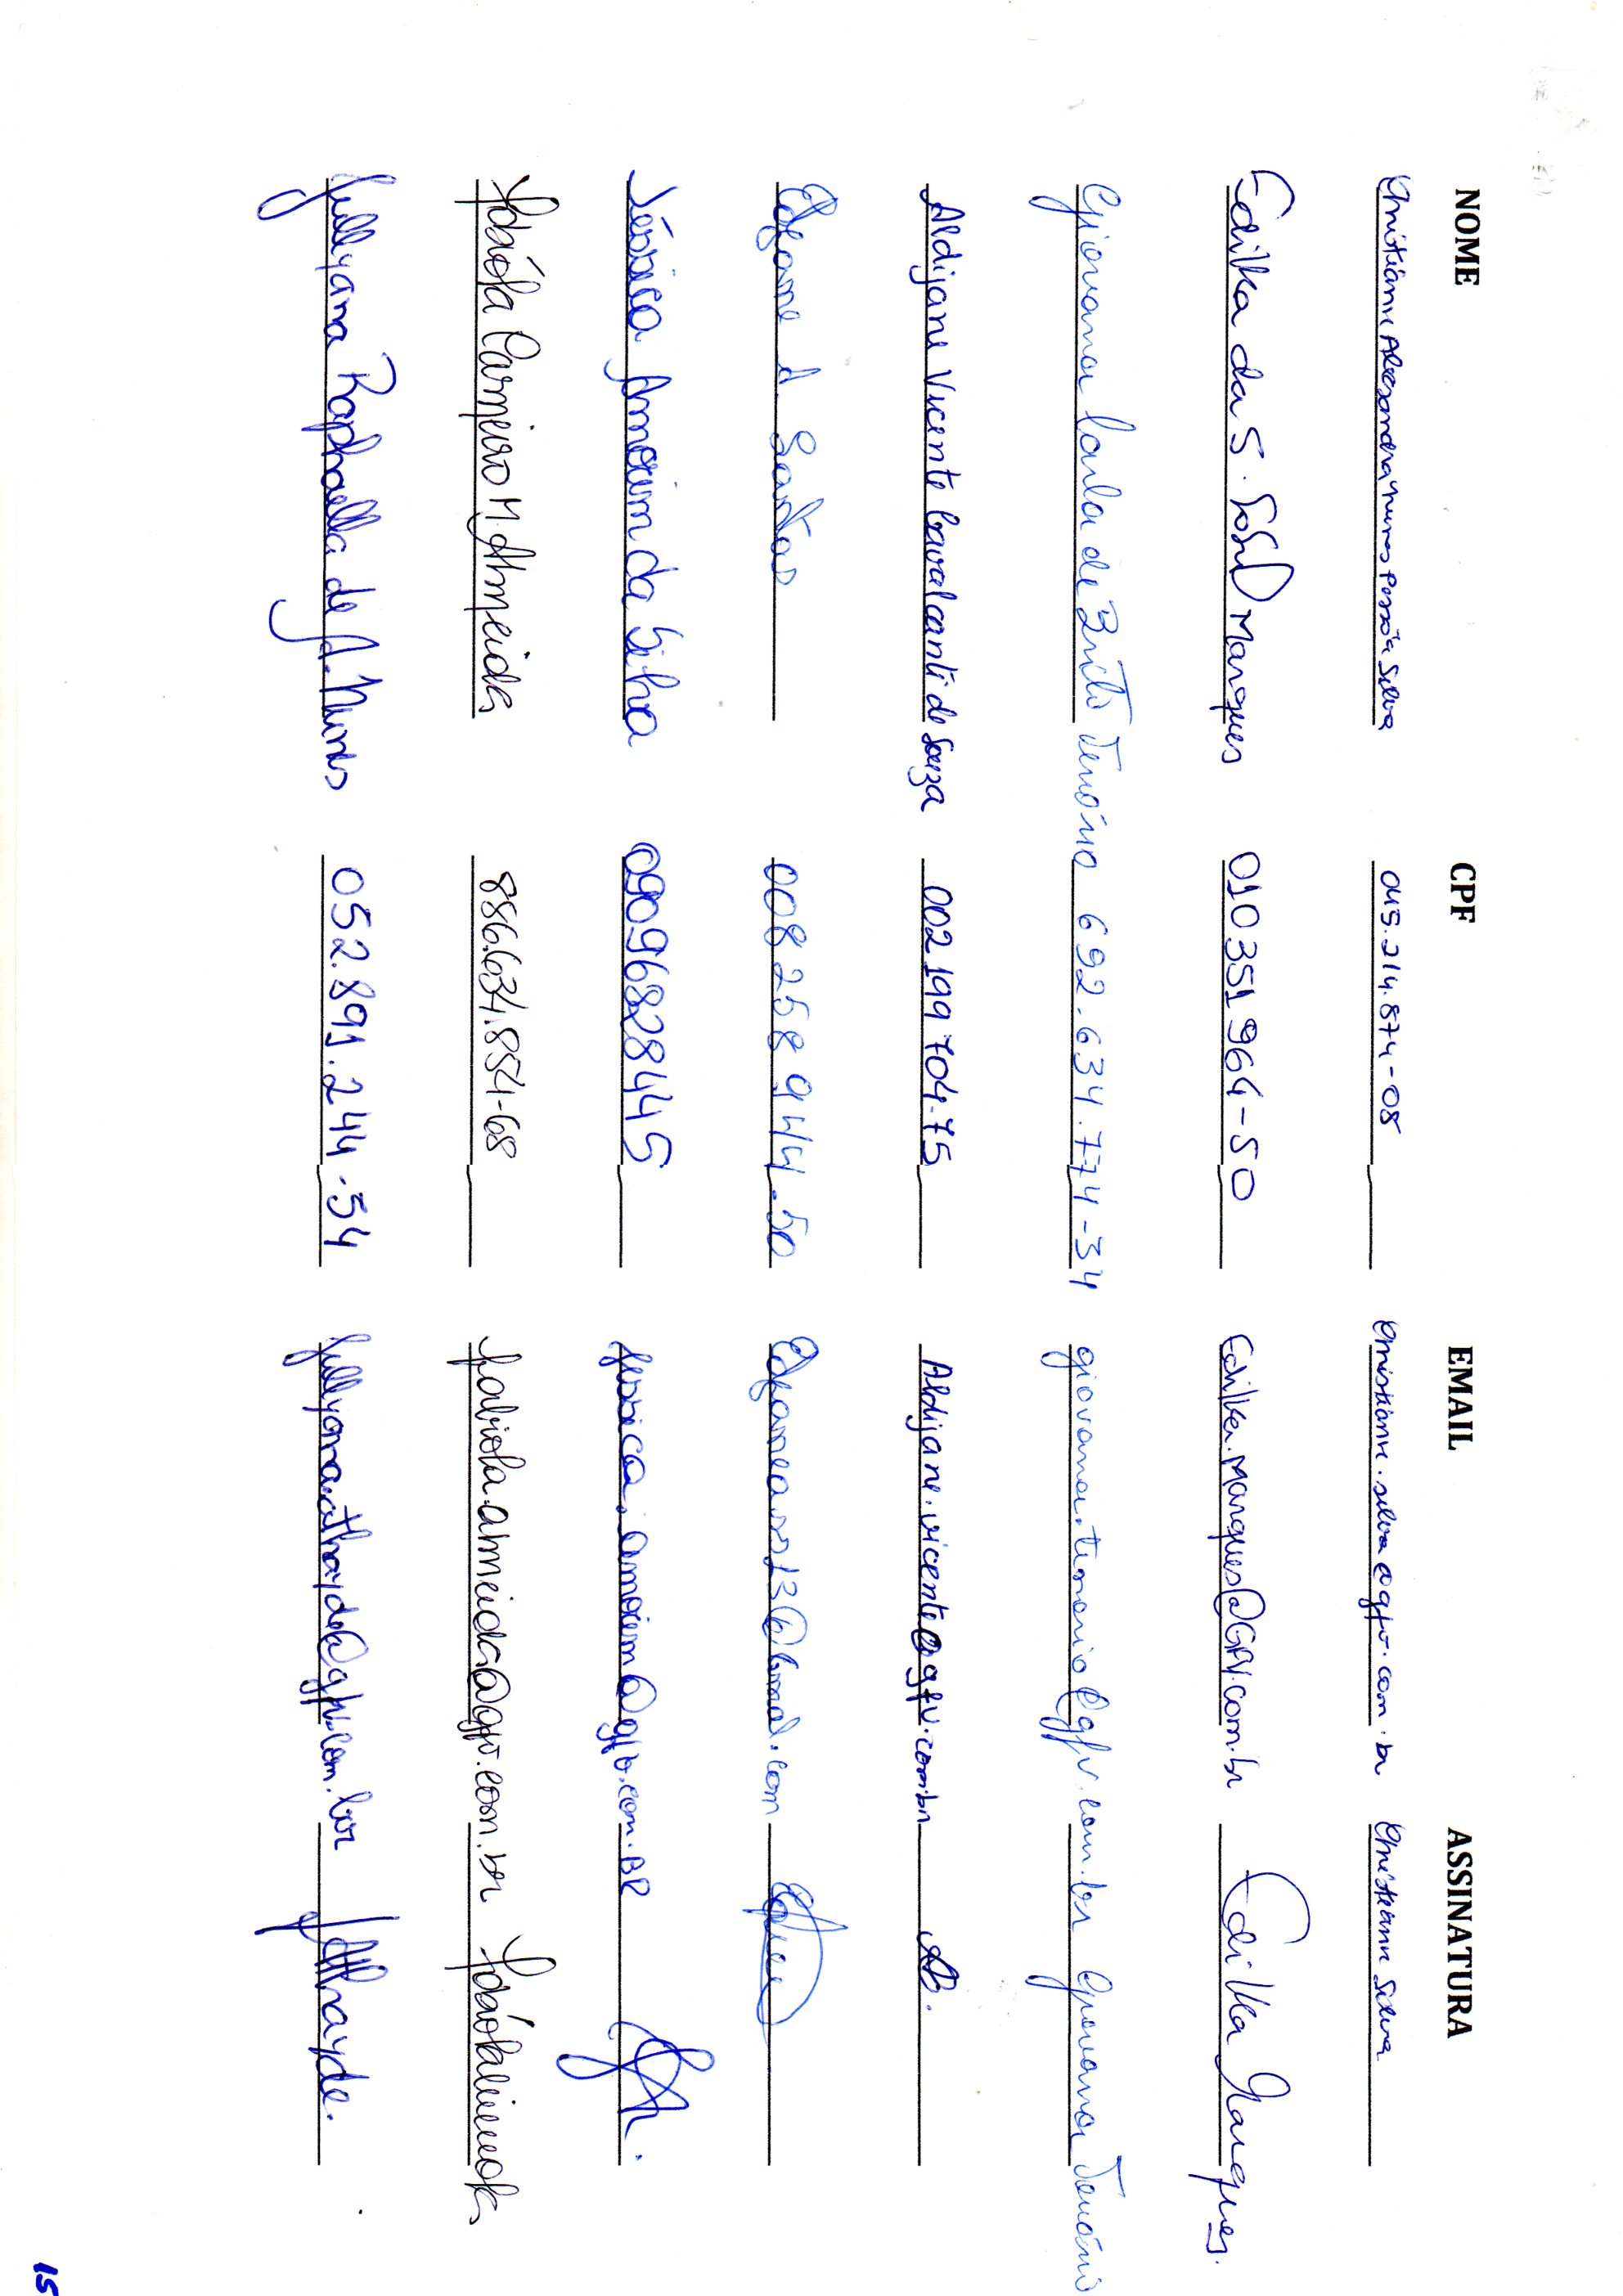 NOME CPF EMAIL ASSINATURA
Christianne Alexandra Nunes Pessôa Silva 045.214.874-08 christianne.silva@gfv.com.br Christianne Silva
Edilka da S. Marques 010351964-50 Edilka.Marques@GFV.com.br Edilka Marques.
Giovanna Carla de Brito Tenório 692.634.774-34 giovanna.tenorio@gfv.com.br Giovanna Tenório
Aldijane Vicente Cavalcanti de Souza 002199704-75 Aldijane.vicente@gfv.com.br
A. Santos 008258944-50
Jéssica Amorim da Silva 09096828445 jessica.amorim@gfv.com.BR
Fabíola Carneiro M. Almeida 886.634.854-68 fabiola.almeida@gfv.com.br
Jullyana Raphaella de A. Nunes 052.891.244-54 jullyana.athayde@gfv.com.br JAthayde.
15